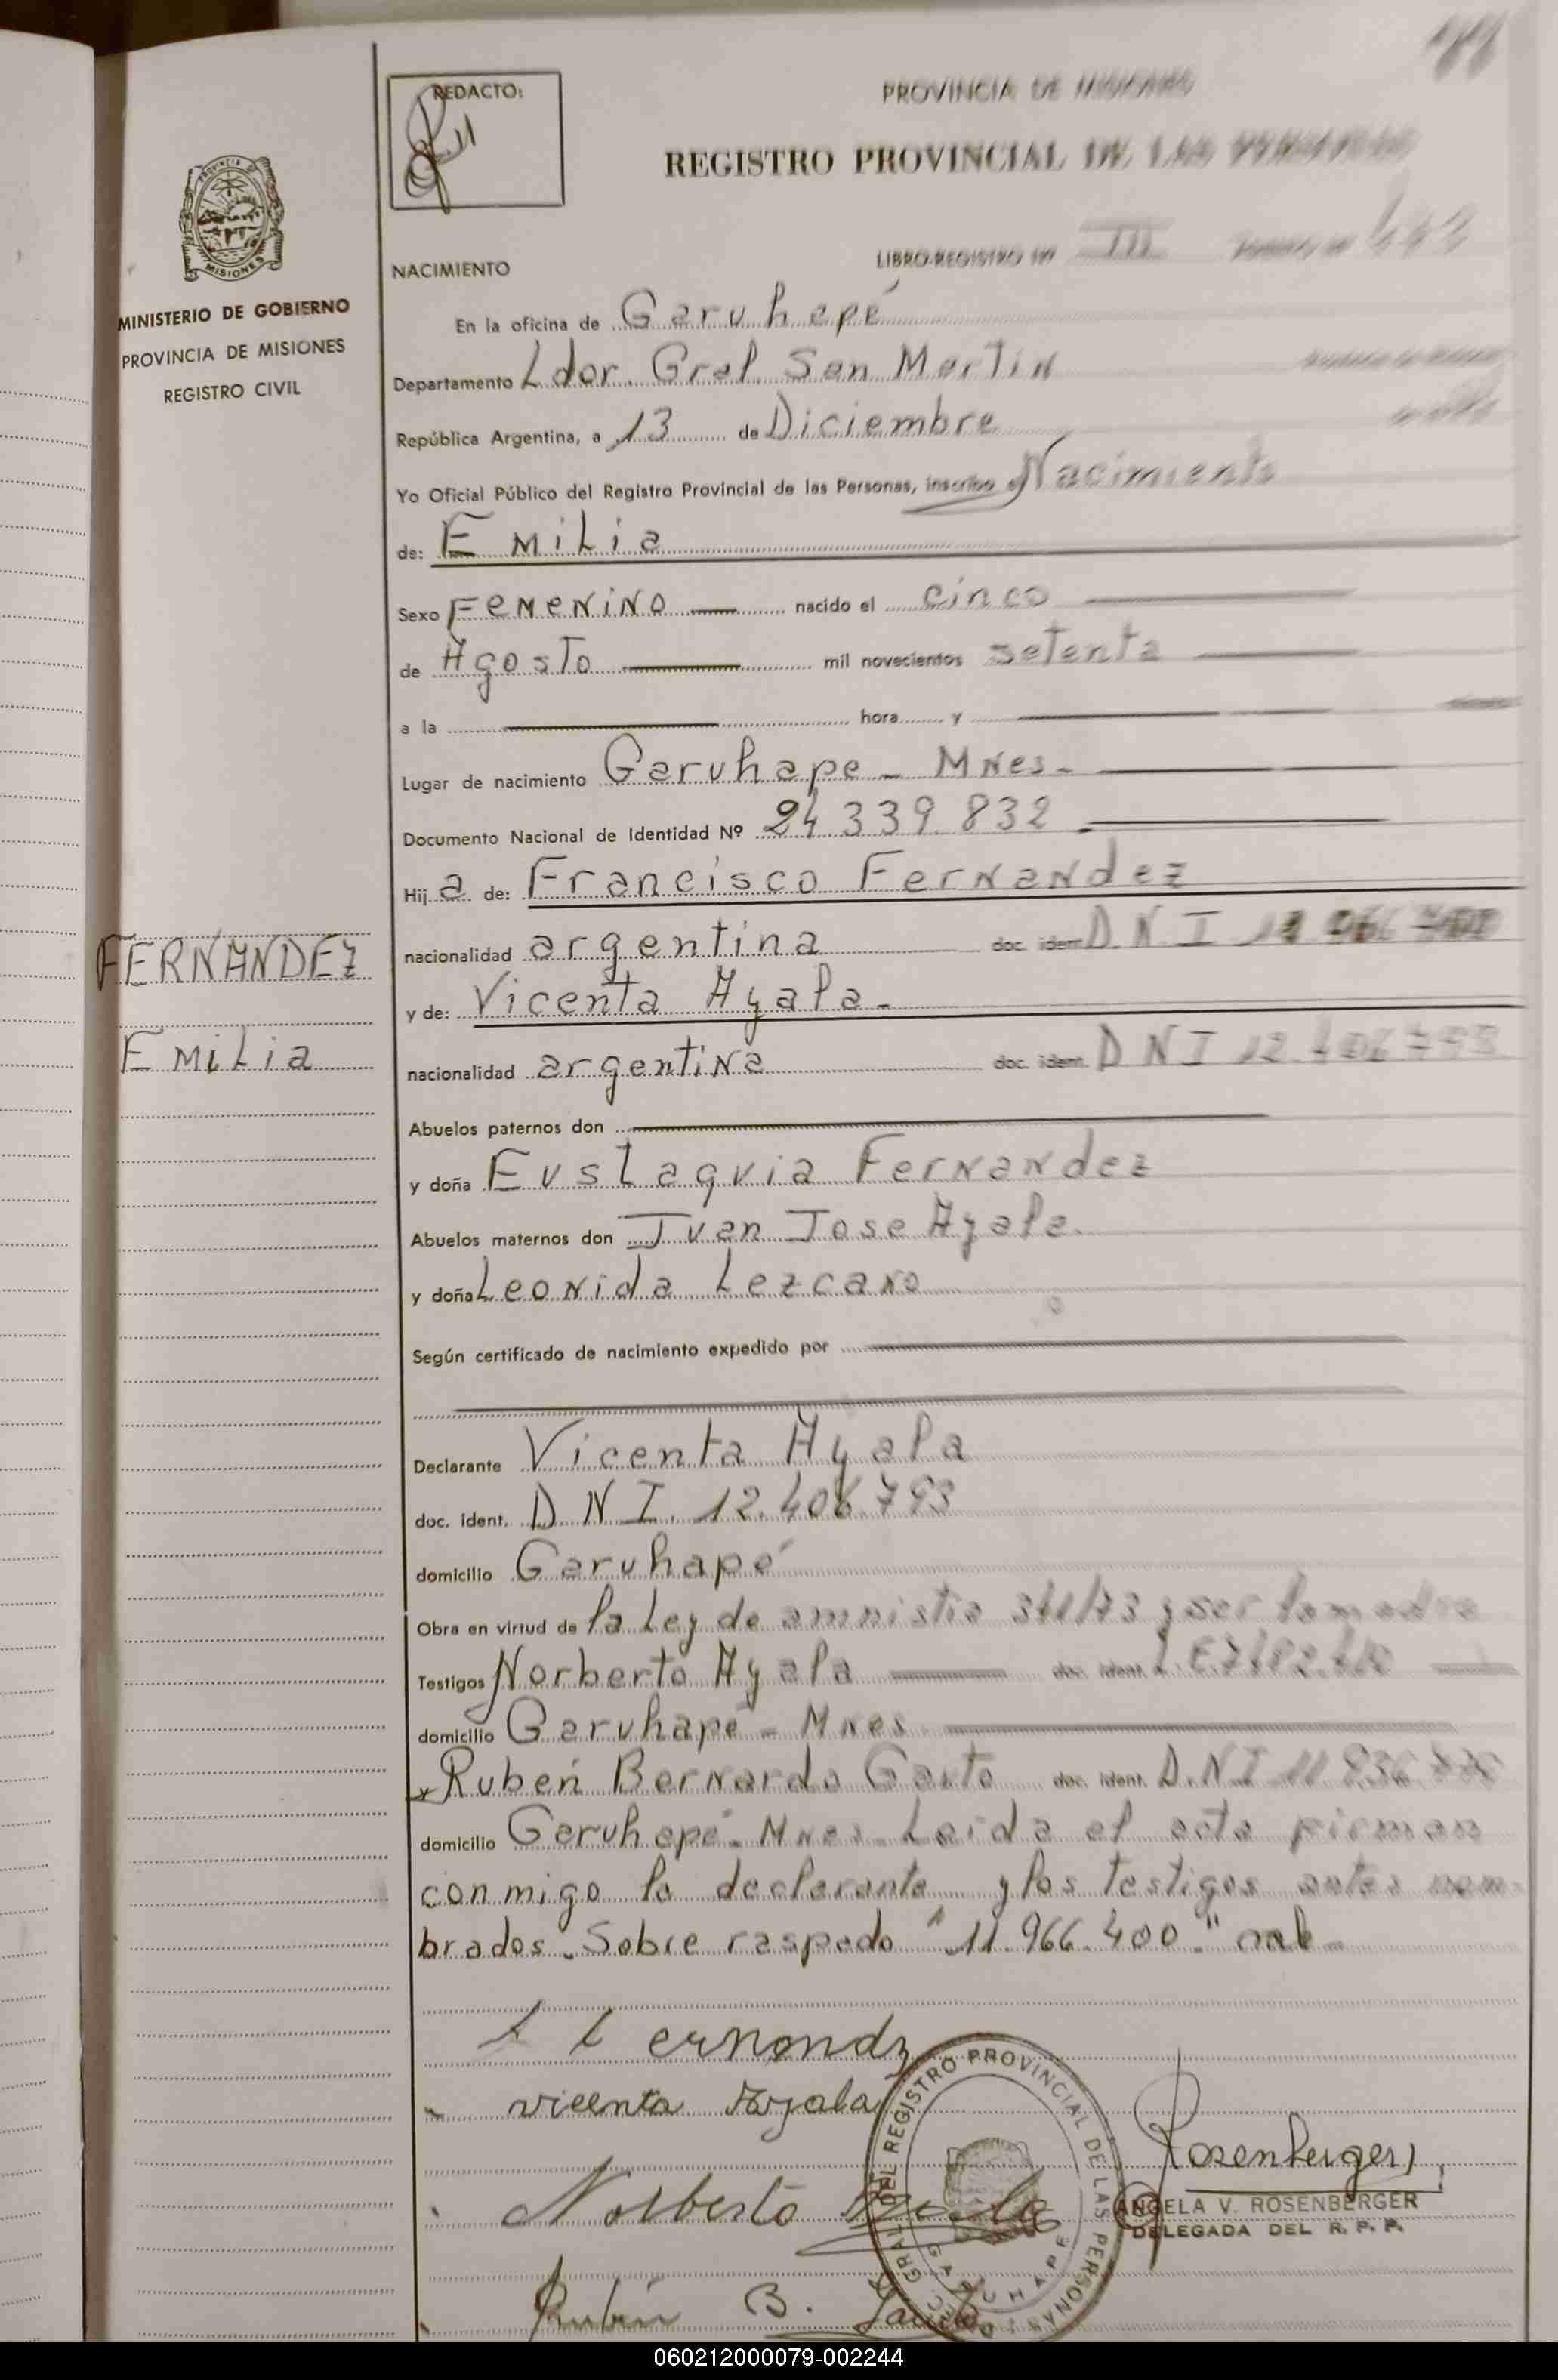 REDACTO:
PROVINCIA DE MISIONES
REGISTRO PROVINCIAL DE LAS PERSONAS
PROVINCIA DE MISIONES
MINISTERIO DE GOBIERNO
PROVINCIA DE MISIONES
REGISTRO CIVIL
LIBRO-REGISTRO Nº III
NACIMIENTO
En la oficina de Garuhapé
Departamento Ldor. Gral. San Martin
República Argentina, a 13 de Diciembre
Yo Oficial Público del Registro Provincial de las Personas, inscribo el Nacimiento
de: Emilia
Sexo Femenino nacido el cinco
de Agosto mil novecientos setenta
a la hora y
Lugar de nacimiento Garuhape - Mnes-
Documento Nacional de Identidad Nº 24 339.832
Hija de: Francisco Fernandez
FERNANDEZ
nacionalidad argentina doc. ident. D.N.I
y de: Vicenta Ayala-
Emilia
nacionalidad argentina doc. ident. DNI 12.406.793
Abuelos paternos don
y doña Eustaquia Fernandez
Abuelos maternos don Juan Jose Ayala.
y doña Leonida Lezcano
Según certificado de nacimiento expedido por
Declarante Vicenta Ayala
doc. ident. D.N.I. 12.406.793
domicilio Garuhapé
Obra en virtud de la Ley de amnistia y ser la madre
Testigos Norberto Ayala doc. ident.
domicilio Garuhapé - Mnes.
y Rubén Bernardo Gauto doc. ident. D.N.I
domicilio Garuhapé - Mnes - Leida el acta firman
conmigo la declarante y los testigos antes nom-
brados. Sobre raspado "11.966.400." vale-
vicenta Ayala
Rosenberger
Norberto Ayala
ANGELA V. ROSENBERGER
DELEGADA DEL R. P. P.
REGISTRO PROVINCIAL DE LAS PERSONAS
GARUHAPE
Rubén B. Gauto
060212000079-002244